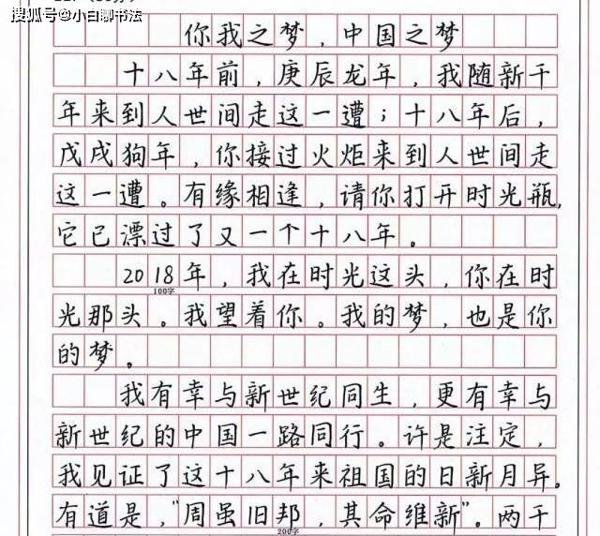 搜狐号@小白聊书法
你我之梦，中国之梦
十八年前，庚辰龙年，我随新千
年来到人世间走这一遭；十八年后，
戊戌狗年，你接过火炬来到人世间走
这一遭。有缘相逢，请你打开时光瓶，
它已漂过了又一个十八年。
2018年，我在时光这头，你在时
100字
光那头。我望着你。我的梦，也是你
的梦。
我有幸与新世纪同生，更有幸与
新世纪的中国一路同行。许是注定，
我见证了这十八年来祖国的日新月异。
有道是，“周虽旧邦，其命维新”。两千
200字